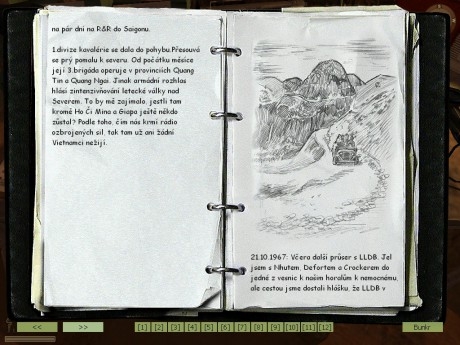 na pár dní na R&R do Saigonu.
1.divize kavalérie se dala do pohybu.Přesouvá
se prý pomalu k severu. Od počátku měsíce
její 3.brigáda operuje v provinciích Quang
Tin a Quang Ngai. Jinak armádní rozhlas
hlásí zintenzivňování letecké války nad
Severem. To by mě zajímalo, jestli tam
kromě Ho Či Mina a Giapa ještě někdo
zůstal? Podle toho, čím nás krmí rádio
ozbrojených sil, tak tam už ani žádní
Vietnamci nežijí.
21.10.1967: Včera další průser s LLDB. Jel
jsem s Nhutem, Defortem a Crockerem do
jedné z vesnic k našim horalům k nemocnému,
ale cestou jsme dostali hlášku, že LLDB v
<< >> [1] [2] [3] [4] [5] [6] [7] [8] [9] [10] [11] [12] Bunkr